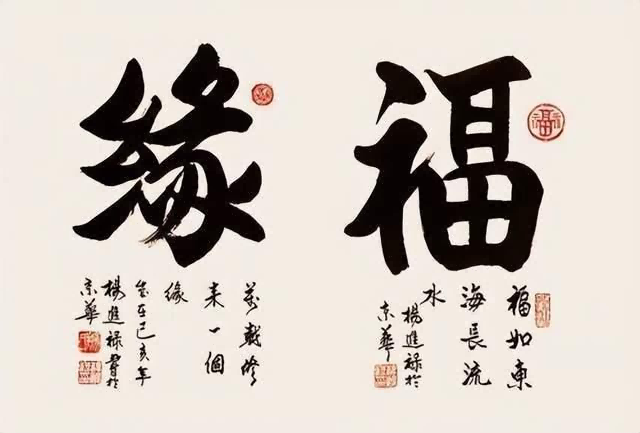 福
福如東
海長流
水
楊進祿於
京華
緣
萬載修
來一個
緣
歲在己亥年
楊進祿書於
京華